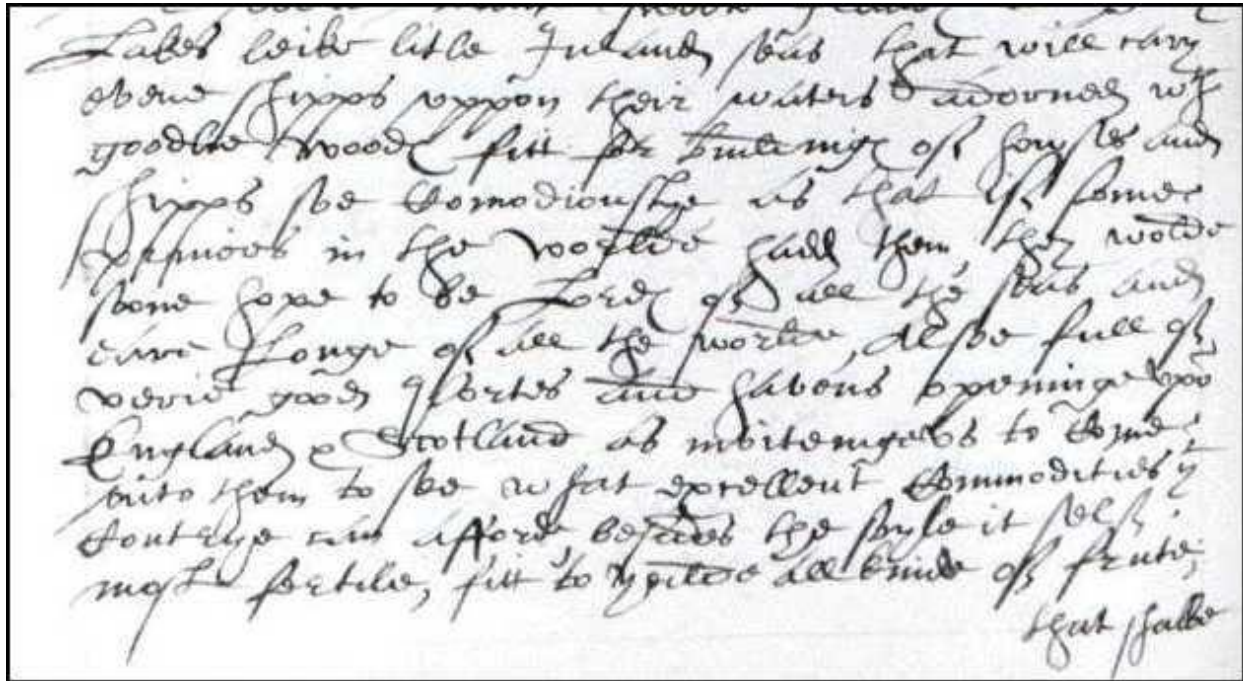 Lakes leike litle Inland seas that will cary
evene shipps vppon their waters adorned wth
goodlie woodes fitt for buildinge of howses and
shipps soe comodiouslye as that if some
princes in the worlde hadd them, they wolde
sone hope to be Lordes of all the seas and
eare longe of all the worlde, Alsoe full of
verie good Portes and havens openinge vpō
England & Scotlland as invitenge vs to come
vnto them to see what excellent Commodities yt
Contrye can afford besides the soyle it self
most fertile, fitt to yeilde all kinde of frute,
that shalbe